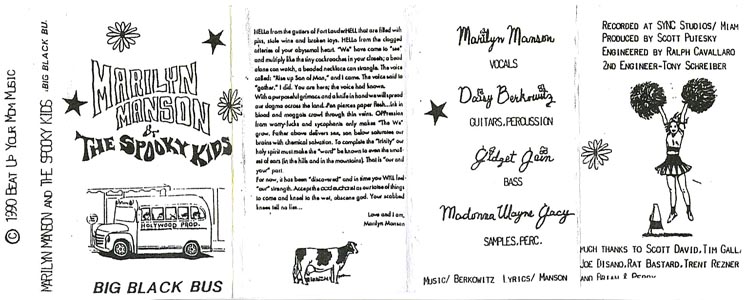 © 1990 BEAT UP YOUR MOM MUSIC
MARILYN MANSON AND THE SPOOKY KIDS BIG BLACK BU
MARILYN
MANSON
&
THE SPOOKY KIDS
HOLYWOOD PROD.
BIG BLACK BUS
HELLo from the gutters of Fort LauderHELL that are filled with
pics, stale wine and broken toys. HELLo from the clogged
arteries of your abysmal heart. "We" have come to "see"
and multiply like the tiny cockroaches in your closets; a bead
alone can watch, a beaded necklace can strangle. The voice
called: "Rise up Son of Man," and I came. The voice said to
"gather," I did. You are here; the voice had known.
With a purposeful grimace and a knife in hand we will spread
our dogma across the land. Pen pierces paper flesh...ink in
blood and maggots crawl through this veins. OPPression
from worry-fucks and sycophants only makes "The We"
grow. Father above delivers sex, son below saturates our
brains with chemical salvation. To complete the "trinity" our
holy spirit must make the "word" be known to even the small-
est of ears (in the hills and in the mountains). That is "our and
your" part.
For now, it has been "discovered" and in time you WILL feel
"our" strength. Accept the acid eucharist as our tribe of things
to come and kneel to the wet, obscene god. Your scabbed
knees tell no lies...
Love and I am,
Marilyn Manson
Marilyn Manson
VOCALS
Daisy Berkowitz
GUITARS, PERCUSSION
Gidget Gein
BASS
Madonna Wayne Gacy
SAMPLES, PERC.
MUSIC/ BERKOWITZ LYRICS/ MANSON
RECORDED AT SYNC STUDIOS/ MIAM
PRODUCED BY SCOTT PUTESKY
ENGINEERED BY RALPH CAVALLARO
2ND ENGINEER-TONY SCHREIBER
MUCH THANKS TO SCOTT DAVID, TIM GALL
JOE DISANO, RAT BASTARD, TRENT REZNER
AND BRIAN & PERRY